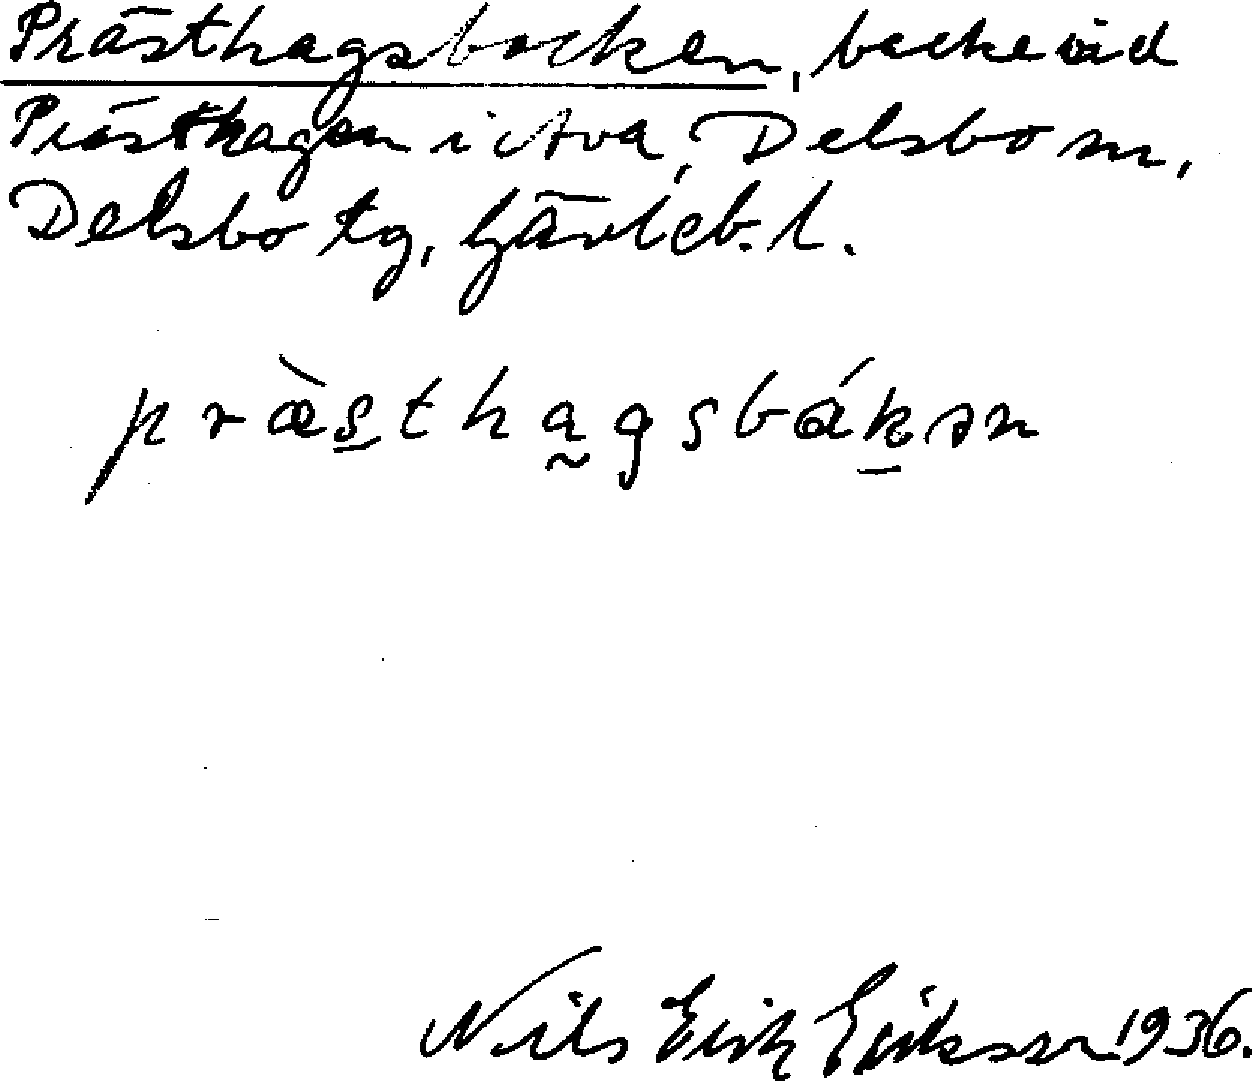 Prästhagsbacken, backe vid
Prästhagen i Ava, Delsbo sn,
Delsbo tg, Gävleb. l.
præ̀sthagsbákən
Nils Erik Eriksson 1936.